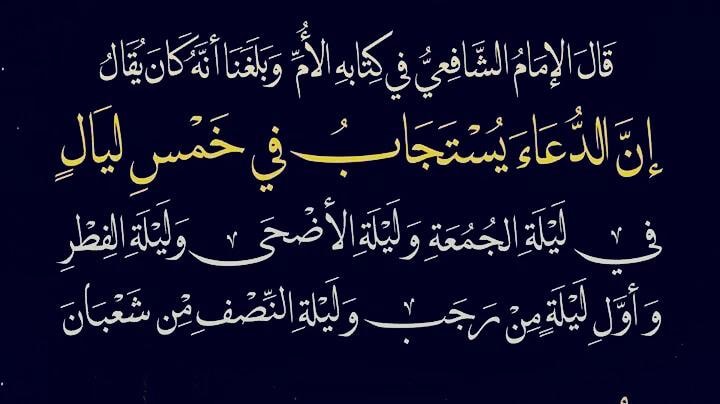 قَالَ الإِمَامُ الشَّافِعِيُّ فِي كِتَابِهِ الأُمِّ وَبَلَغَنَا أَنَّهُ كَانَ يُقَالُ
إِنَّ الدُّعَاءَ يُسْتَجَابُ فِي خَمْسِ لَيَالٍ
فِي لَيْلَةِ الجُمُعَةِ وَلَيْلَةِ الأَضْحَى وَلَيْلَةِ الفِطْرِ
وَأَوَّلِ لَيْلَةٍ مِنْ رَجَبَ وَلَيْلَةِ النِّصْفِ مِنْ شَعْبَانَ